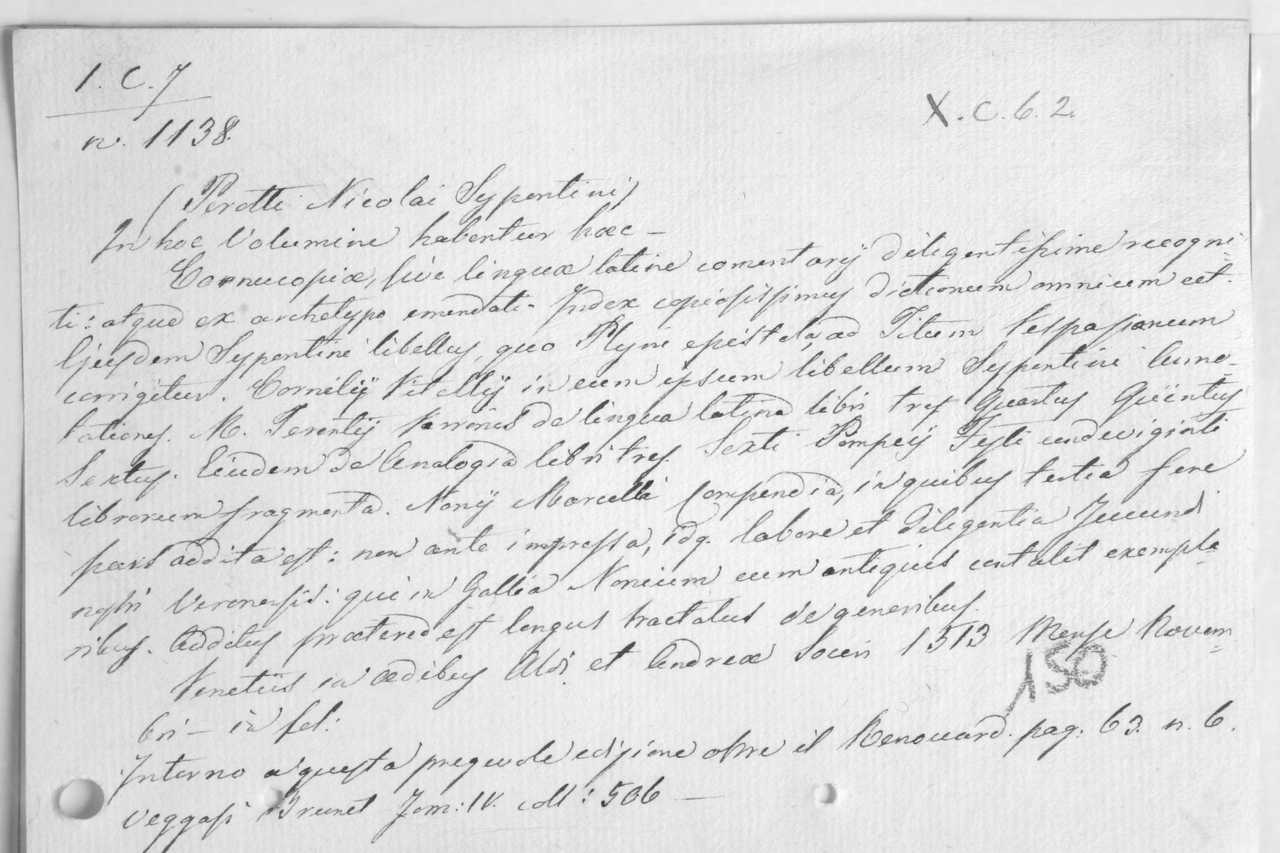 1. C. 7
X. C. 6. 2.
n. 1138.
(Perotti Nicolai Sypontini)
In hoc Volumine habentur hæc –
Cornucopiæ, sive linguæ latine comentarij diligentissime recogni=
ti: atque ex archetypo emendati – Index copiosissimus dictionum omnium et.
Ejusdem Sypontini libellus, quo Plynii epistola, ad Titum Vespasianum
corrigitur. Cornelij Vitellij in eum ipsum libellum Sypontini Anno=
tationes. M. Terentij Varronis de lingua latina libri tres Quartus Quintus
Sextus. Eiusdem de Analogia libri tres. Sexti Pompeij Festi undeviginti
librorum fragmenta. Nonij Marcelli Compendia, in quibus tertia fere
pars addita est: non ante impressa, idq labore et diligentia Jucundi
nostri Veronensis: qui in Gallia Nonium cum antiquis contulit exempla
ribus. Additus præterea est longus tractatus de generibus.
Venetiis in ædibus Aldi et Andreæ Soceri 1513 Mense Novem=
bri – in fol:
150
Intorno a questa pregevole edizione oltre il Renouard. pag: 63. n. 6.
veggasi Brunet Tom: IV. coll: 506 –